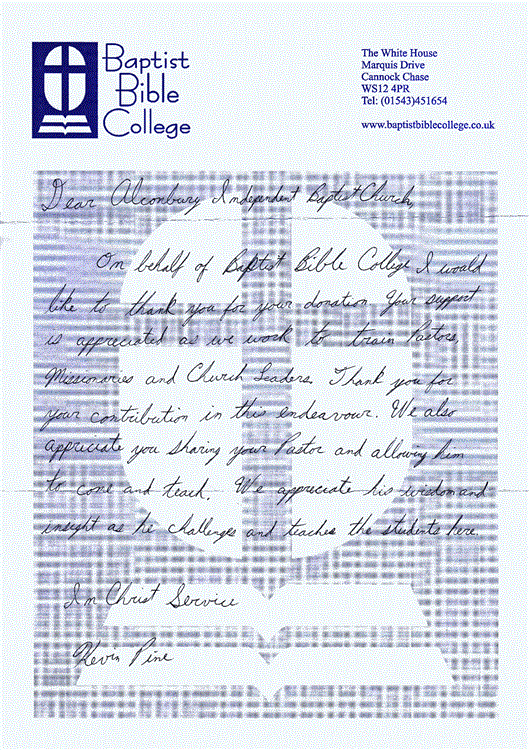 Baptist
Bible
College
The White House
Marquis Drive
Cannock Chase
WS12 4PR
Tel: (01543)451654
www.baptistbiblecollege.co.uk
Dear Alconbury Independent Baptist Church,
On behalf of Baptist Bible College I would
like to thank you for your donation. Your support
is appreciated as we work to train Pastors,
Missionaries and Church Leaders. Thank you for
your contribution in this endeavour. We also
appreciate you sharing your Pastor and allowing him
to come and teach. We appreciate his wisdom and
insight as he challenges and teaches the students here.
In Christ Service
Kevin Pine